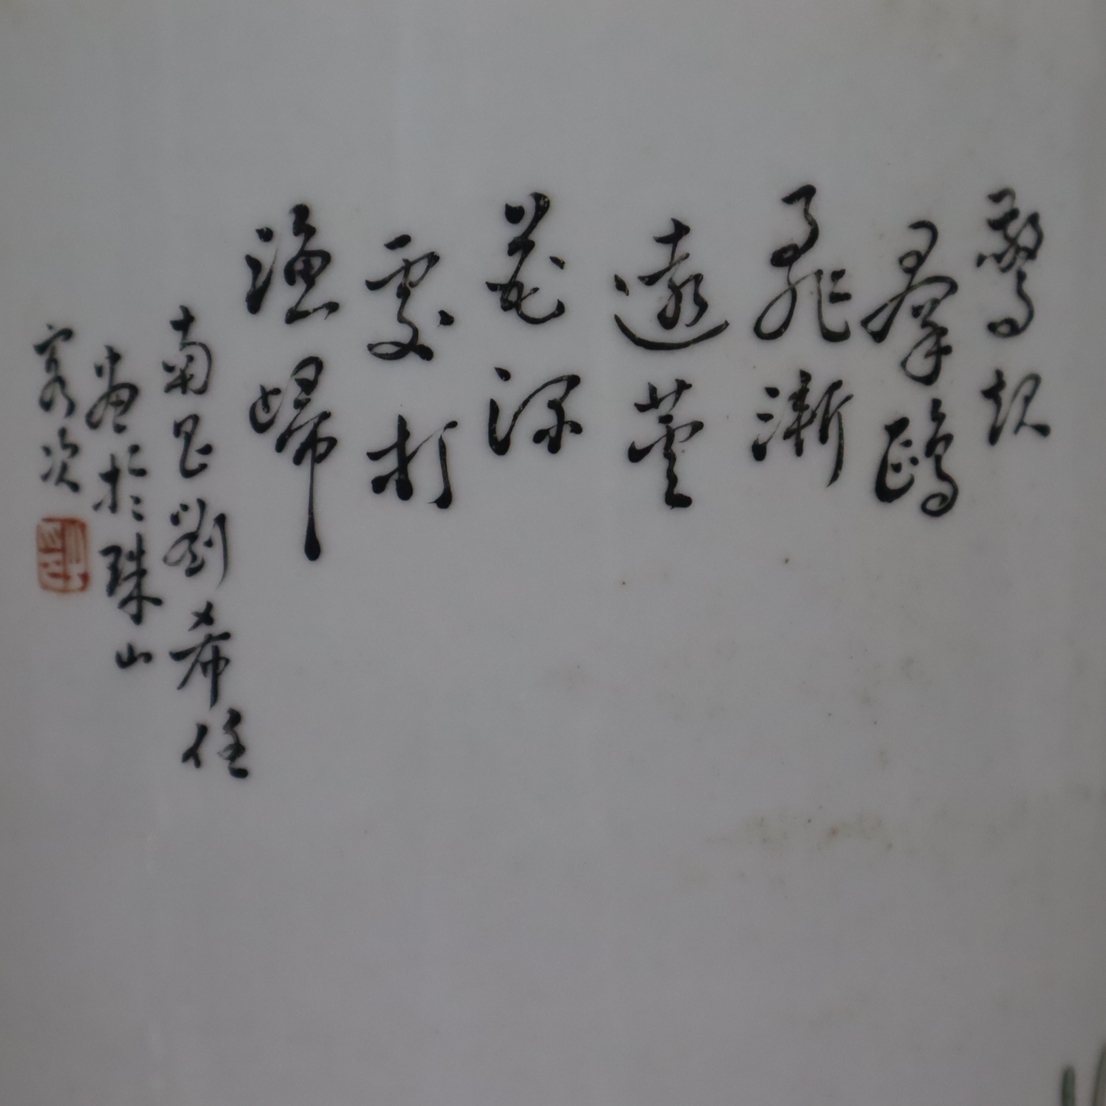 驚起
羣鷗
飛漸
遠蘆
花深
處打
漁歸
南昌劉希任
畫於珠山
客次